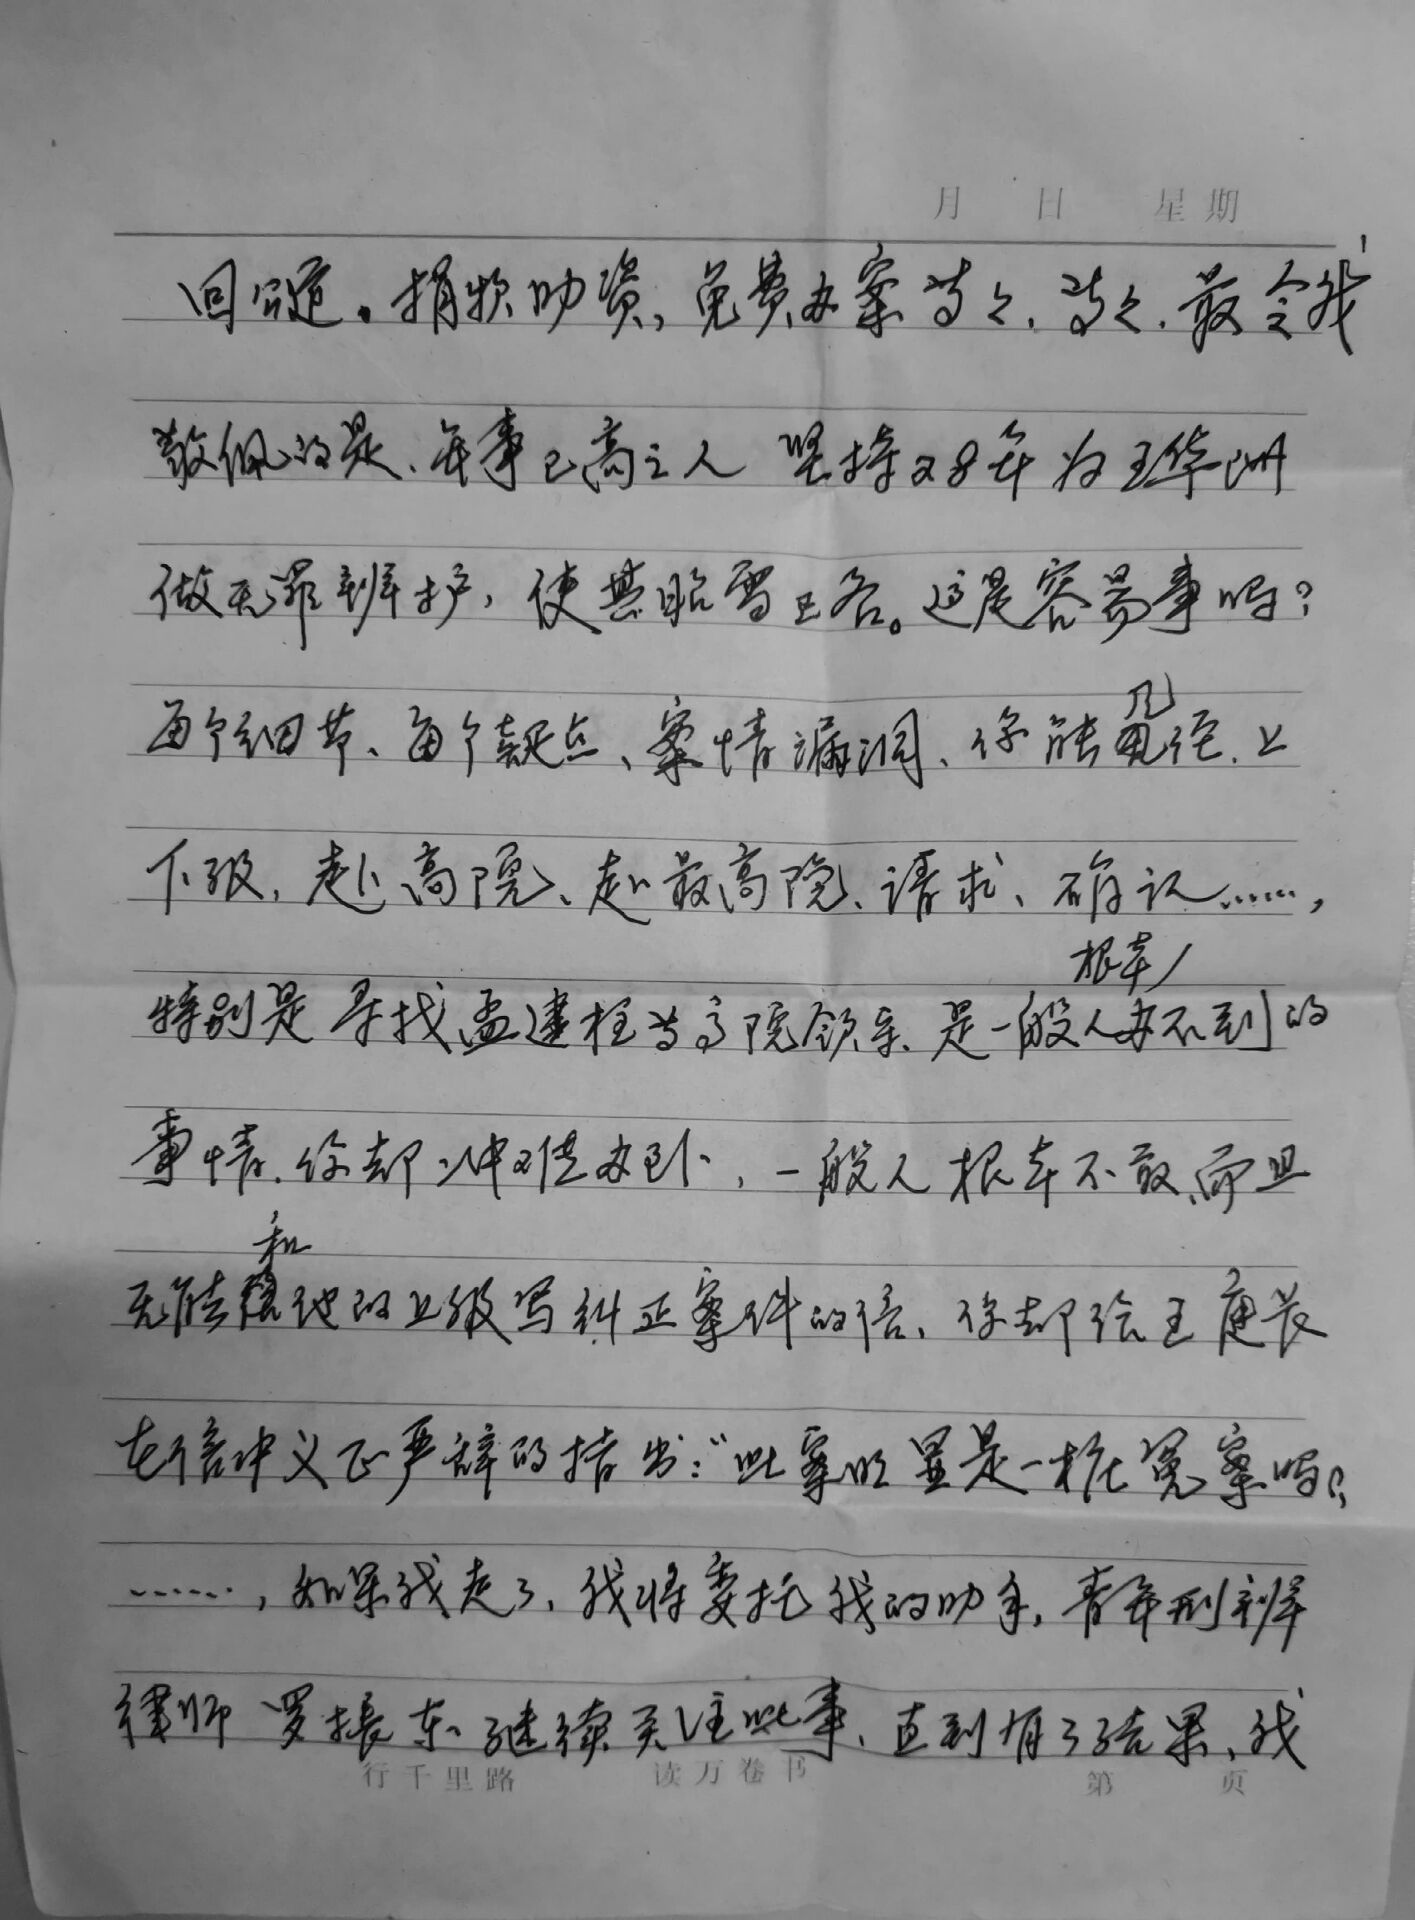 月 日 星期
回馈。捐款助资，免费办案等々、等々. 最令我
敬佩的是、年事已高之人 坚持28年为王华洲
做无罪辩护，使其昭雪正名。这是容易事吗？
每个细节、每个疑点、案情漏洞、你能几经.上
下级，赴高院、赴最高院、请求、确认……，
根本
特别是寻找孟建柱等高院领导、是一般人办不到的
事情.你却冲难办到，一般人根本不敢,而且
和
无能他的上级写纠正案件的信、你却给王庭长
在信中义正严辞的指出：“此案明显是一桩冤案吗？
……，如果我走了，我将委托我的助手，青年刑辩
律师罗振东继续关注此事、直到有了结果、我
行千里路 读万卷书 第 页